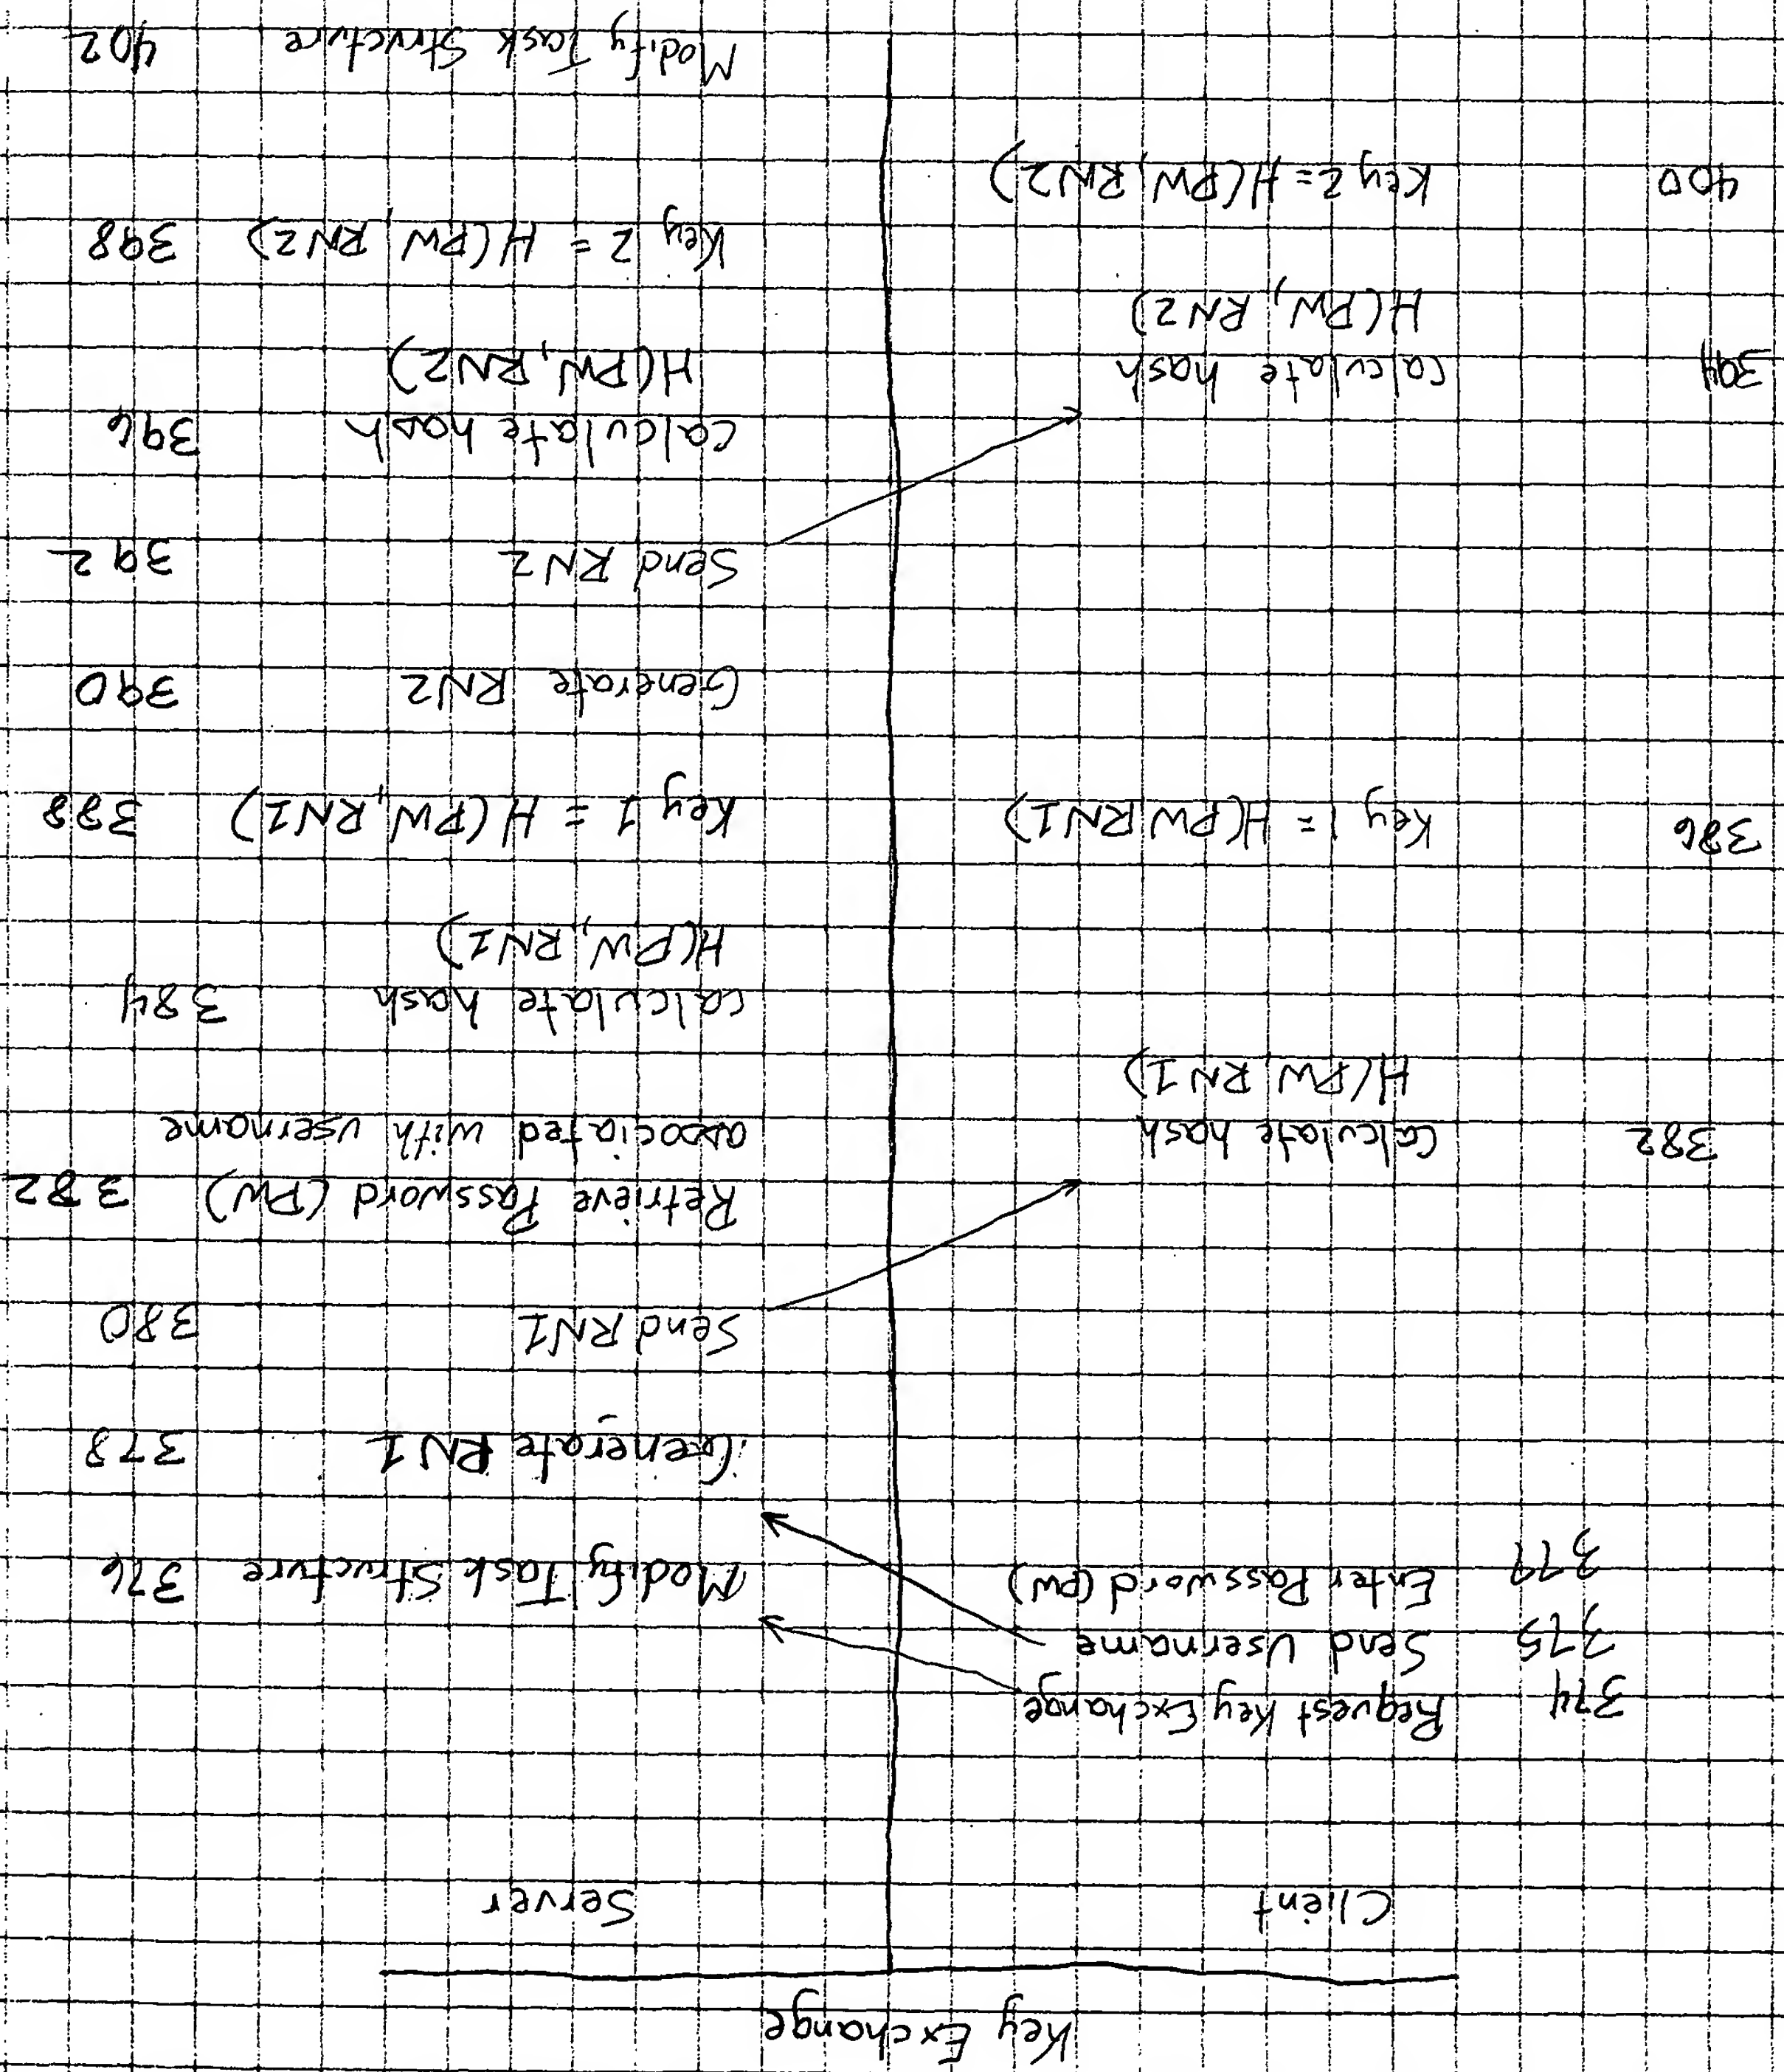 Key Exchange
Client Server
374 Request Key Exchange
375 Send Username
377 Enter Password (PW) Modify Task Structure 376
Generate RN1 378
Send RN1 380
Retrieve Password (PW) 382
382 Calculate hash associated with username
H(PW, RN1)
calculate hash 384
H(PW, RN1)
386 Key 1= H(PW RN1) Key 1 = H(PW, RN1) 388
Generate RN2 390
Send RN2 392
calculate hash 396
394 calculate hash H(PW, RN2)
H(PW, RN2)
Key 2 = H(PW, RN2) 398
400 Key 2= H(PW, RN2)
Modify Task Structure 402